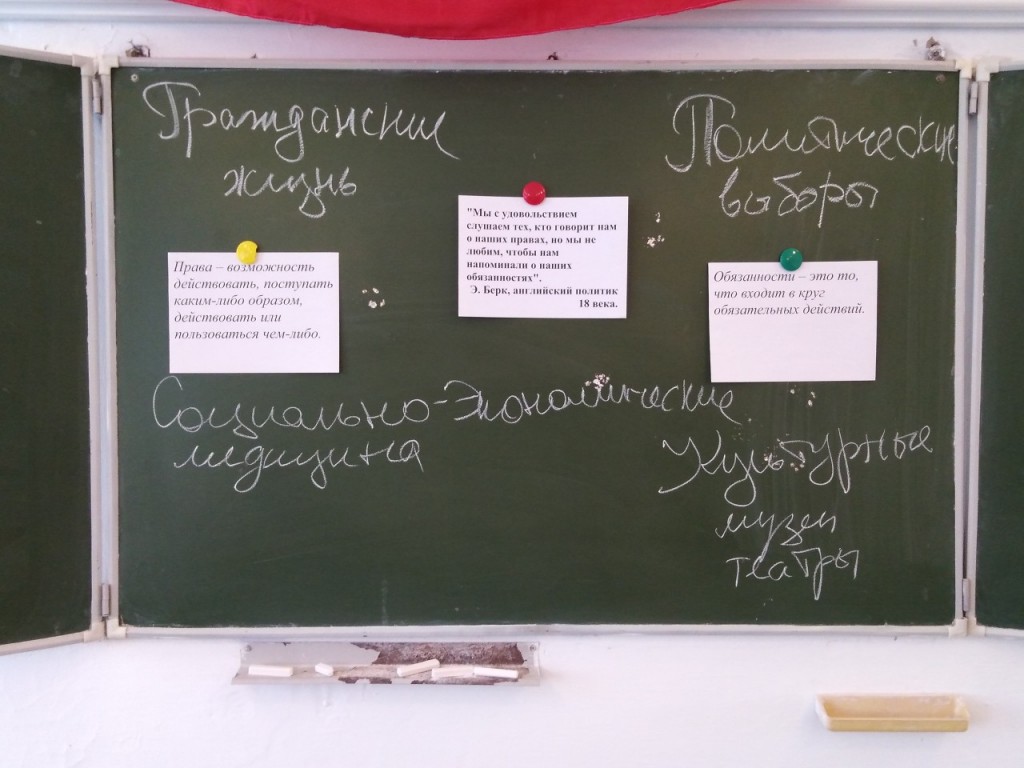 Гражданские
жизнь
Политические
выборы
"Мы с удовольствием
слушаем тех, кто говорит нам
о наших правах, но мы не
любим, чтобы нам
напоминали о наших
обязанностях".
Э. Берк, английский политик
18 века.
Права – возможность
действовать, поступать
каким-либо образом,
действовать или
пользоваться чем-либо.
Обязанности – это то,
что входит в круг
обязательных действий.
Социально-экономические
медицина
Культурные
музеи
театры